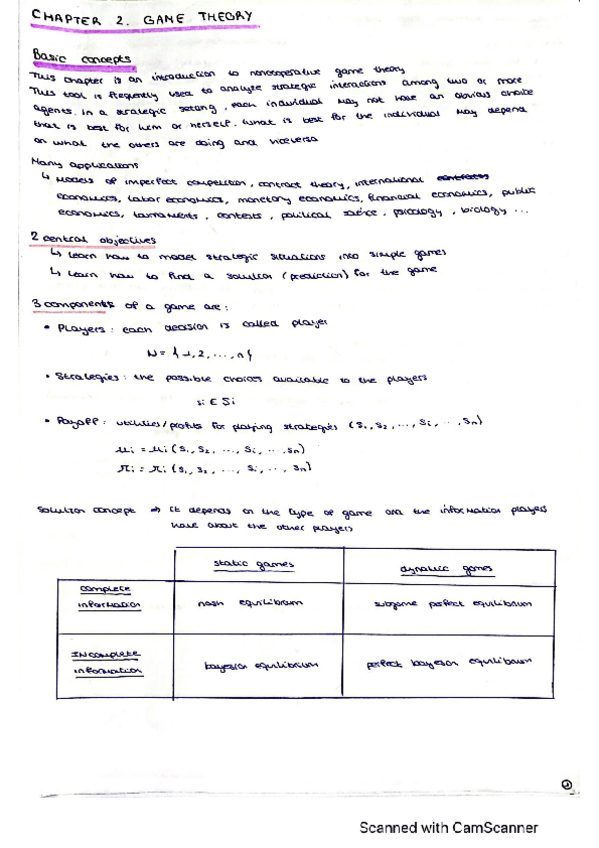 CHAPTER 2. GAME THEORY
Basic concepts
This chapter is an introduction to noncooperative game theory
This tool is frequently used to analyze strategic interactions among two or more
agents. In a strategic setting, each individual may not have an obvious choice
that is best for him or herself. What is best for the individual may depend
on what the others are doing and viceversa
Many applications
↳ Models of imperfect competition, contract theory, international
economics, labor economics, monetary economics, financial economics, public
economics, tournaments, contests, political science, psicology, biology ...
2 central objectives
↳ Learn how to model strategic situations into simple games
↳ Learn how to find a solution (prediction) for the game
3 components of a game are:
• Players: each decision is called player
N = {1, 2, ..., n}
• Strategies: the possible choices available to the players
si ∈ Si
• Payoff: utilities/profits for playing strategies (S1, S2, ..., Si, ..., Sn)
μi = μi (S1, S2, ..., Si, ..., Sn)
πi = πi (S1, S2, ..., Si, ..., Sn)
Solution concept → It depends on the type of game and the information players
have about the other players
static games dynamic games
complete
information nash equilibrium subgame perfect equilibrium
INcomplete
information bayesian equilibrium perfect bayesian equilibrium
Scanned with CamScanner